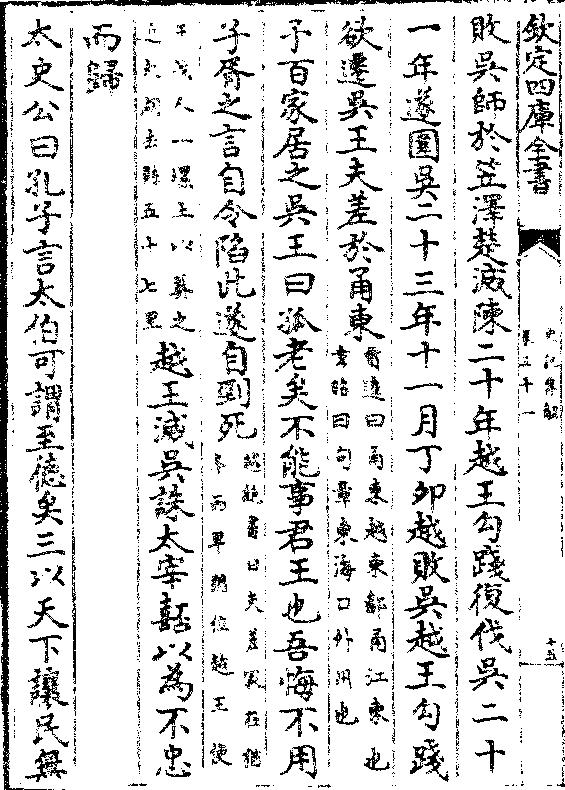 欽定四庫全書
史記集解
卷三十一
十五
敗吳師於笠澤楚滅陳二十年越王勾踐復伐吳二十
一年遂圍吳二十三年十一月丁卯越敗吳越王勾踐
欲遷吳王夫差於甬東賈逵曰甬東越東鄙甬江東也
韋昭曰句章東海口外洲也
予百家居之吳王曰孤老矣不能事君王也吾悔不用
子胥之言自令陷此遂自剄死越絶書曰夫差冢在猶
亭西卑猶位越王使
干戈人一㙼土以葬之
近太湖去縣五十七里越王滅吳誅太宰嚭以為不忠
而歸
太史公曰孔子言太伯可謂至德矣三以天下讓民無